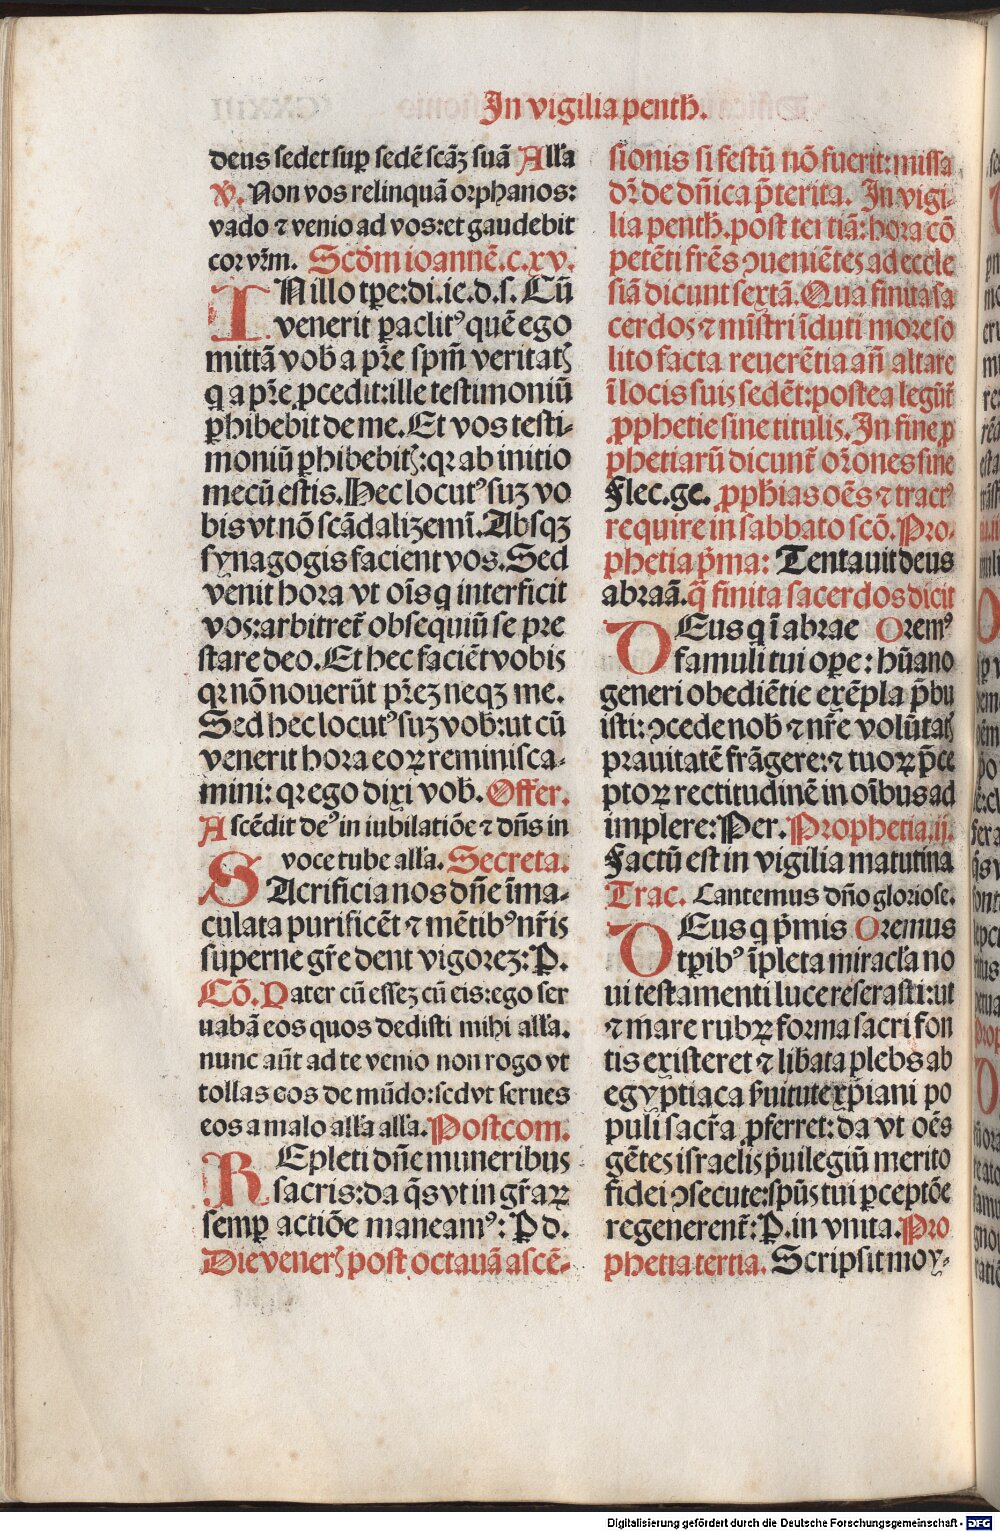 In vigilia penth̄.
deus sedet suꝑ sedē scāꝫ suā Alľa
℣. Non vos relinquā orphanos:
vado ⁊ venio ad vos: et gaudebit
cor vr̄m. Scd̄m ioannē. c. xv.
IN illo tꝑe: di. ie. d. s. Cū
venerit ꝑaclitꝰ quē ego
mittā vob̄ a pr̄e spm̄ veritatꝭ
q a pr̄e ꝓcedit: ille testimoniū
ꝑhibebit de me. Et vos testi-
moniū ꝑhibebitꝭ: qꝛ ab initio
mecū estis. Hec locutꝰ suꝫ vo
bis vt nō scādalizemī. Absqꝫ
synagogis facient vos. Sed
venit hora vt oīs q interficit
vos: arbitret̄ obsequiū se pre
stare deo. Et hec faciēt vobis
qꝛ nō nouerūt pr̄eꝫ neqꝫ me.
Sed hec locutꝰ suꝫ vob̄: ut cū
venerit hora eoꝝ reminisca-
mini: qꝛ ego dixi vob̄. Offer.
Ascēdit deꝰ in iubilatiōe ⁊ dn̄s in
voce tube alľa. Secreta.
SAcrificia nos dn̄e īma-
culata purificēt ⁊ mētibꝰ nr̄is
superne gr̄e dent vigoreꝫ: P̱.
Cō. Pater cū esseꝫ cū eis: ego ser
uabā eos quos dedisti mihi alľa.
nunc aūt ad te venio non rogo vt
tollas eos de mūdo: sed vt serues
eos a malo alľa alľa. Postcom.
REpleti dn̄e muneribus
sacris: da q̄s vt in gr̄aꝝ
semꝑ actiōe maneamꝰ: P̱ d.
Die venerꝭ post octauā ascē-
sionis si festū nō fuerit: missa
dr̄ de dn̄ica p̄terita. In vigi-
lia penth̄. post tertiā: hora cō
petēti fr̄es ꝯueniētes ad eccle
siā dicunt sextā. Qua finita sa
cerdos ⁊ mīstri īduti more so
lito facta reuerētia an̄ altare
ī locis suis sedēt: postea legūt̄
ꝓphetie sine titulis. In fine ꝓ
phetiarū dicunt̄ or̄ones sine
Flec. ge. ꝓph̄ias oēs ⁊ tractꝰ
require in sabbato scō. Pro-
phetia p̄ma: Tentauit deus
abraā. q̄ finita sacerdos dicit
DEus q ī abrae Oremꝰ
famuli tui oꝑe: hūano
generi obediētie exēpla p̄bu
isti: ꝯcede nob̄ ⁊ nr̄e volūtatꝭ
prauitatē frāgere: ⁊ tuoꝝ p̄ce
ptoꝝ rectitudinē in oībus ad
implere: Per. Prophetia. ii.
Factū est in vigilia matutina
Trac. Cantemus dn̄o gloriose.
DEus q p̄mis Oremus
tꝑibꝰ īpleta miracľa no
ui testamenti luce reserasti: ut
⁊ mare rubꝝ forma sacri fon
tis existeret ⁊ libata plebs ab
egyptiaca ẜuitute xp̄iani po
puli sacr̄a ꝓferret: da vt oēs
gētes israelis p̄uilegiū merito
fidei ꝯsecute: spūs tui ꝑceptōe
regenerent̄: P̱. in vnita. Pro
phetia tertia. Scripsit moy-
Digitalisierung gefördert durch die Deutsche Forschungsgemeinschaft - DFG